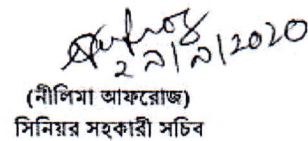 ২৯/৯/2020
(নীলিমা আফরোজ)
সিনিয়র সহকারী সচিব